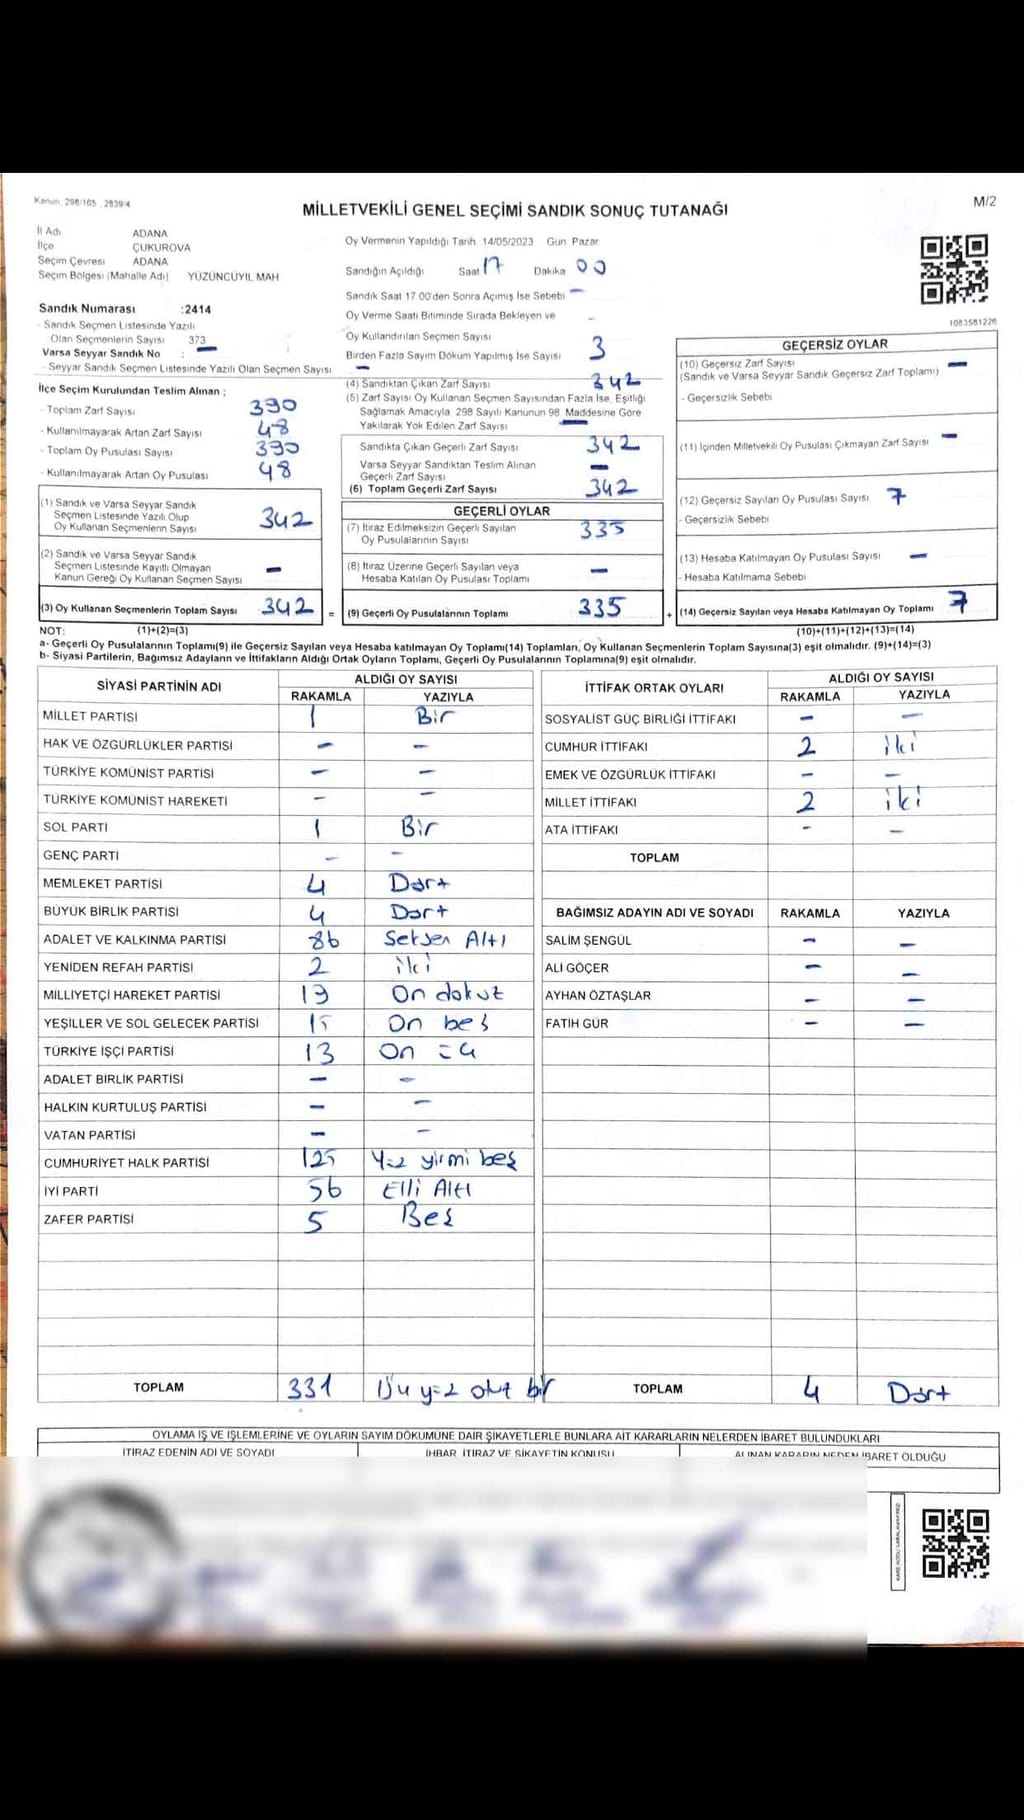 Kanun, 298/105 , 2839/4
MİLLETVEKİLİ GENEL SEÇİMİ SANDIK SONUÇ TUTANAĞI
M/2
İl Adı ADANA
İlçe ÇUKUROVA
Seçim Çevresi ADANA
Seçim Bölgesi (Mahalle Adı) YÜZÜNCÜYIL MAH
Sandık Numarası :2414
- Sandık Seçmen Listesinde Yazılı
Olan Seçmenlerin Sayısı 373
Varsa Seyyar Sandık No : -
- Seyyar Sandık Seçmen Listesinde Yazılı Olan Seçmen Sayısı -
İlçe Seçim Kurulundan Teslim Alınan ;
- Toplam Zarf Sayısı 390
- Kullanılmayarak Artan Zarf Sayısı 48
- Toplam Oy Pusulası Sayısı 390
- Kullanılmayarak Artan Oy Pusulası 48
(1) Sandık ve Varsa Seyyar Sandık
Seçmen Listesinde Yazılı Olup
Oy Kullanan Seçmenlerin Sayısı 342
(2) Sandık ve Varsa Seyyar Sandık
Seçmen Listesinde Kayıtlı Olmayan
Kanun Gereği Oy Kullanan Seçmen Sayısı -
(3) Oy Kullanan Seçmenlerin Toplam Sayısı 342 =
Oy Vermenin Yapıldığı Tarih 14/05/2023 Gün Pazar
Sandığın Açıldığı Saat 17 Dakika 00
Sandık Saat 17 00'den Sonra Açımış İse Sebebi -
Oy Verme Saati Bitiminde Sırada Bekleyen ve -
Oy Kullandırılan Seçmen Sayısı
Birden Fazla Sayım Döküm Yapılmış İse Sayısı 3
(4) Sandıktan Çıkan Zarf Sayısı 342
(5) Zarf Sayısı Oy Kullanan Seçmen Sayısından Fazla İse, Eşitliği
Sağlamak Amacıyla 298 Sayılı Kanunun 98. Maddesine Göre
Yakılarak Yok Edilen Zarf Sayısı -
Sandıkta Çıkan Geçerli Zarf Sayısı 342
Varsa Seyyar Sandıktan Teslim Alınan
Geçerli Zarf Sayısı -
(6) Toplam Geçerli Zarf Sayısı 342
GEÇERLİ OYLAR
(7) İtiraz Edilmeksizin Geçerli Sayılan
Oy Pusulalarının Sayısı 335
(8) İtiraz Üzerine Geçerli Sayılan veya
Hesaba Katılan Oy Pusulası Toplamı -
(9) Geçerli Oy Pusulalarının Toplamı 335 +
1083581226
GEÇERSİZ OYLAR
(10) Geçersiz Zarf Sayısı -
(Sandık ve Varsa Seyyar Sandık Geçersiz Zarf Toplamı)
- Geçersizlik Sebebi
(11) İçinden Milletvekili Oy Pusulası Çıkmayan Zarf Sayısı -
(12) Geçersiz Sayılan Oy Pusulası Sayısı 7
- Geçersizlik Sebebi
(13) Hesaba Katılmayan Oy Pusulası Sayısı -
- Hesaba Katılmama Sebebi
(14) Geçersiz Sayılan veya Hesaba Katılmayan Oy Toplamı 7
NOT: (1)+(2)=(3) (10)+(11)+(12)+(13)=(14)
a- Geçerli Oy Pusulalarının Toplamı(9) ile Geçersiz Sayılan veya Hesaba katılmayan Oy Toplamı(14) Toplamları, Oy Kullanan Seçmenlerin Toplam Sayısına(3) eşit olmalıdır. (9)+(14)=(3)
b- Siyasi Partilerin, Bağımsız Adayların ve İttifakların Aldığı Ortak Oyların Toplamı, Geçerli Oy Pusulalarının Toplamına(9) eşit olmalıdır.
SİYASİ PARTİNİN ADI ALDIĞI OY SAYISI
RAKAMLA YAZIYLA
MİLLET PARTİSİ 1 Bir
HAK VE ÖZGÜRLÜKLER PARTİSİ - -
TÜRKİYE KOMÜNİST PARTİSİ - -
TÜRKİYE KOMÜNİST HAREKETİ - -
SOL PARTİ 1 Bir
GENÇ PARTİ - -
MEMLEKET PARTİSİ 4 Dört
BÜYÜK BİRLİK PARTİSİ 4 Dört
ADALET VE KALKINMA PARTİSİ 86 Seksen Altı
YENİDEN REFAH PARTİSİ 2 iki
MİLLİYETÇİ HAREKET PARTİSİ 19 On dokuz
YEŞİLLER VE SOL GELECEK PARTİSİ 15 On beş
TÜRKİYE İŞÇİ PARTİSİ 13 On üç
ADALET BİRLİK PARTİSİ - -
HALKIN KURTULUŞ PARTİSİ - -
VATAN PARTİSİ - -
CUMHURİYET HALK PARTİSİ 125 Yüz yirmi beş
İYİ PARTİ 56 Elli Altı
ZAFER PARTİSİ 5 Beş
TOPLAM 331 Üç yüz otuz bir
İTTİFAK ORTAK OYLARI ALDIĞI OY SAYISI
RAKAMLA YAZIYLA
SOSYALİST GÜÇ BİRLİĞİ İTTİFAKI - -
CUMHUR İTTİFAKI 2 iki
EMEK VE ÖZGÜRLÜK İTTİFAKI - -
MİLLET İTTİFAKI 2 iki
ATA İTTİFAKI - -
TOPLAM
BAĞIMSIZ ADAYIN ADI VE SOYADI RAKAMLA YAZIYLA
SALİM ŞENGÜL - -
ALİ GÖÇER - -
AYHAN ÖZTAŞLAR - -
FATİH GÜR - -
TOPLAM 4 Dört
OYLAMA İŞ VE İŞLEMLERİNE VE OYLARIN SAYIM DÖKÜMÜNE DAİR ŞİKAYETLERLE BUNLARA AİT KARARLARIN NELERDEN İBARET BULUNDUKLARI
İTİRAZ EDENİN ADI VE SOYADI İHBAR, İTİRAZ VE ŞİKAYETİN KONUSU ALINAN KARARIN NEDEN İBARET OLDUĞU